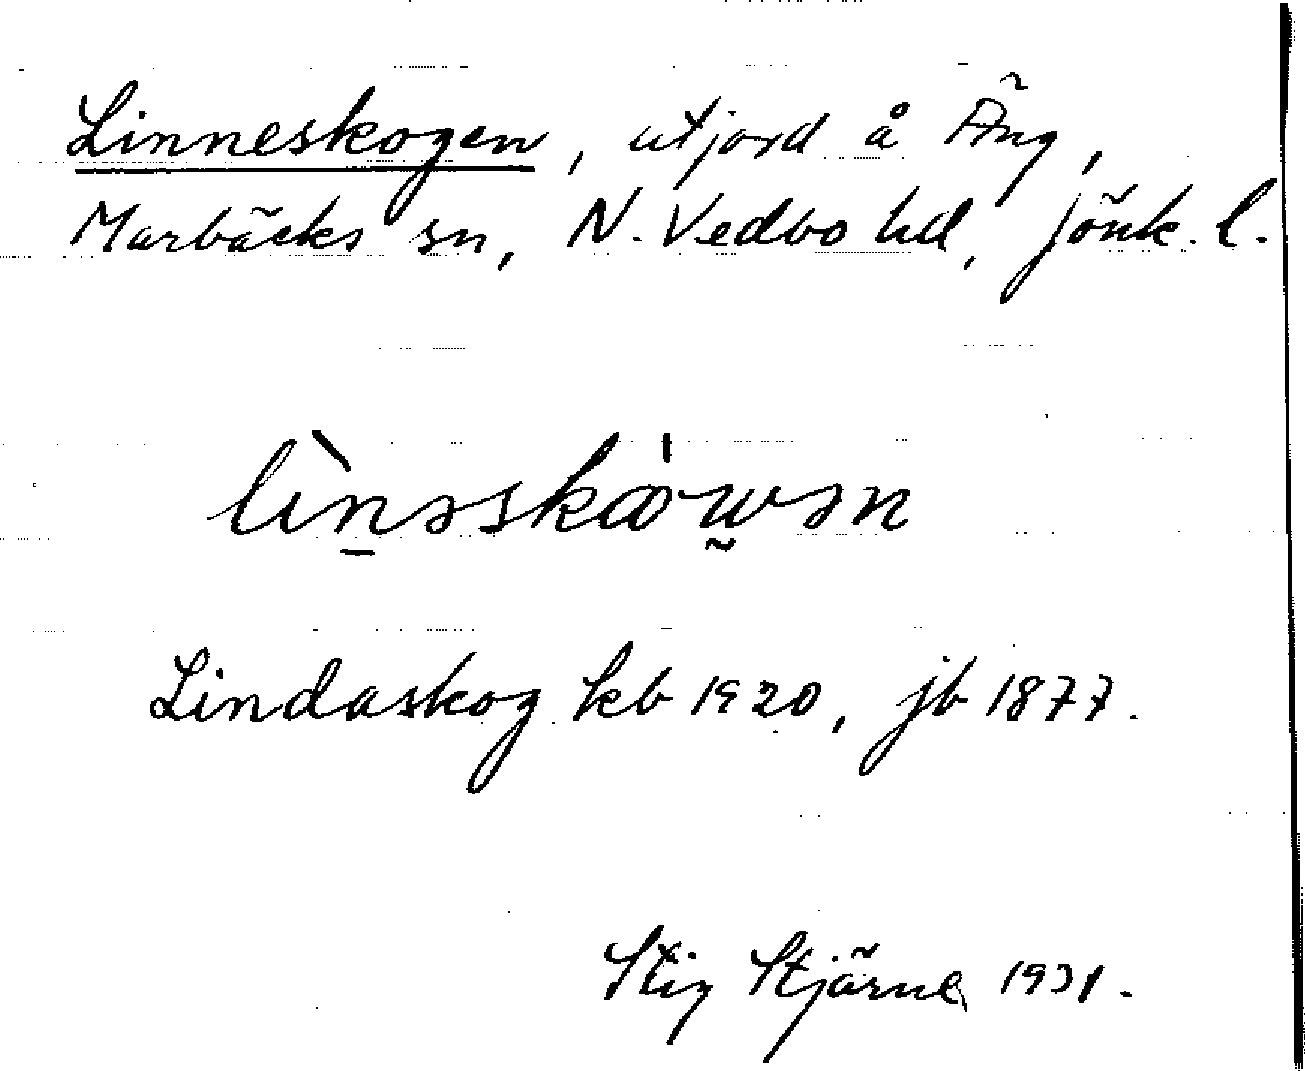 Linneskogen, utjord å Äng,
Marbäcks sn, N. Vedbo hd, Jönk. l.
lìnəskα̇ωən
Lindaskog kb 1920, jb 1877.
Stig Stjärne 1931.